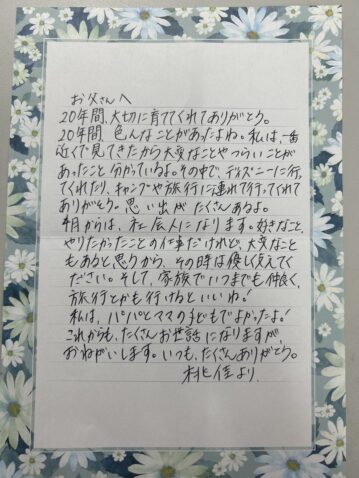 お父さんへ
20年間、大切に育ててくれてありがとう。
20年間、色んなことがあったよね。私は、一番
近くで見てきたから大変なことやつらいことが
あったこと分かっているよ。その中で、ディズニーに行っ
てくれたり、キャンプや旅行に連れて行ってくれて
ありがとう。思い出がたくさんあるよ。
4月からは、社会人になります。好きなこと、
やりたかったことの仕事だけれど、大変なこと
もあると思うから、その時は優しく支えて
ください。そして、家族でいつまでも仲良く、
旅行とかも行けるといいね！
私は、パパとママの子どもでよかったよ！
これからも、たくさんお世話になりますが、
おねがいします。いつも、たくさんありがとう。
桃佳より